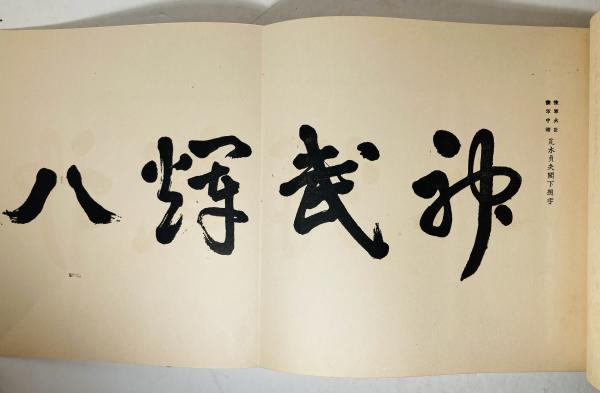 陸軍大臣
陸軍中將
荒木貞夫閣下題字
神武輝八